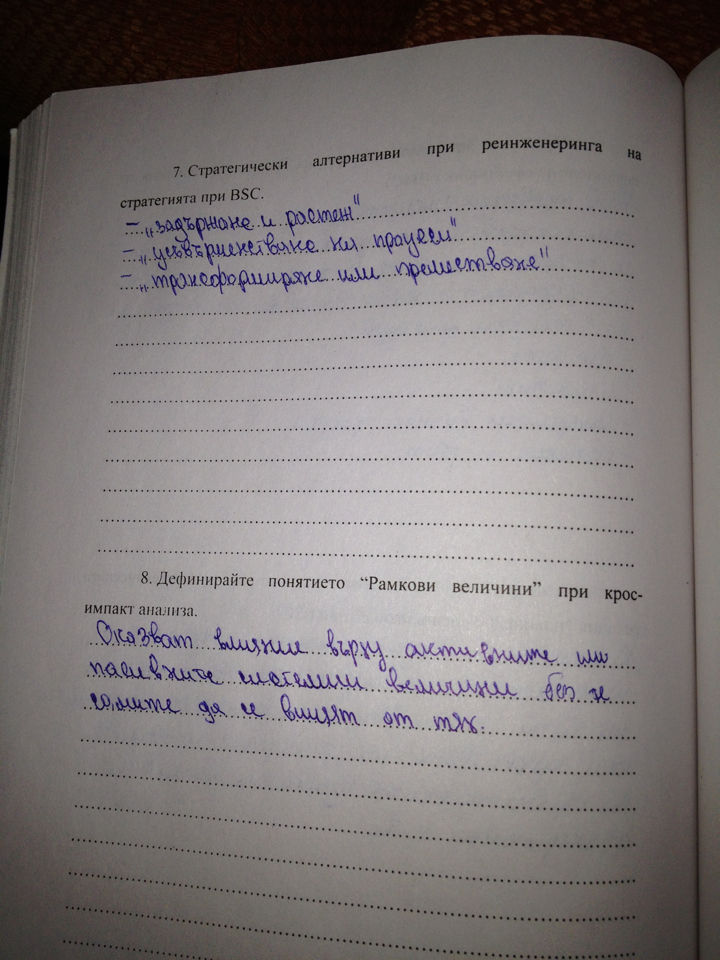 7. Стратегически алтернативи при реинженеринга на
стратегията при BSC.
– „задържане и растеж"
– „усъвършенстване на процеси"
– „трансформиране или преместване"
8. Дефинирайте понятието “Рамкови величини” при крос-
импакт анализа.
Оказват влияние върху активните или
пасивните системни величини без те
самите да се влияят от тях.